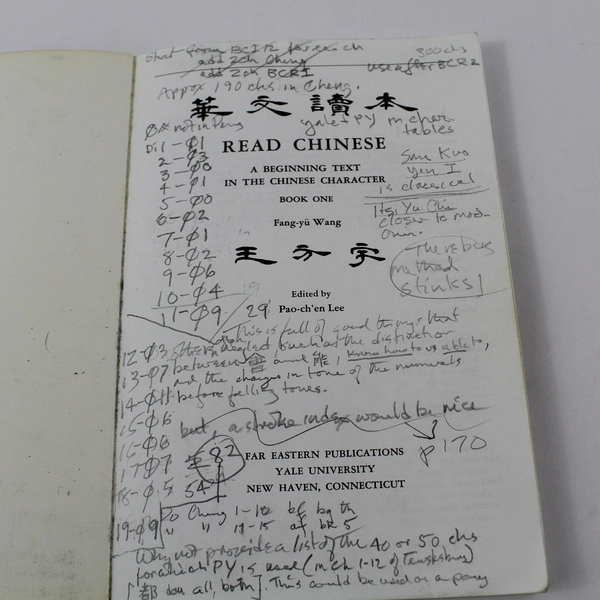 start from BCI12 for each 300 chs
add 2ch Cheng
add 2ch BCRI use after BCR2
Approx 190 chs. in Cheng.
華文讀本
yale-PY in char tables
READ CHINESE
A BEGINNING TEXT
IN THE CHINESE CHARACTER
BOOK ONE
Fang-yü Wang
王方宇
Edited by
Pao-ch'en Lee
San Kuo
Yen I
is classical
Hsi Yu Chi
closer to mod-
ern.
The rebus
method
stinks]
1-Ø1
2-Ø3
3-Ø0
4-Ø1
5-Ø0
6-Ø2
7-Ø1
8-Ø2
9-Ø6
10-Ø4 19
11-Ø9 29
12-Ø3
13-Ø7
14-Ø11
15-Ø6
16-Ø6
17-Ø7 82
18-Ø5 54
19-Ø9
This is full of good things that
others neglect such as the distinction
between 會 and 能, know how to vs able to,
and the changes in tone of the numerals
before falling tones.
but, a stroke index would be nice
p170
FAR EASTERN PUBLICATIONS
YALE UNIVERSITY
NEW HAVEN, CONNECTICUT
Cheng 1-10 bf bq th
" " 11-15 af bk 5
Why not provide a list of the 40 or 50 chs
for which PY is used (in ch 1-12 of Tewksbury)
[都 dou all, both]. This could be used as a pony